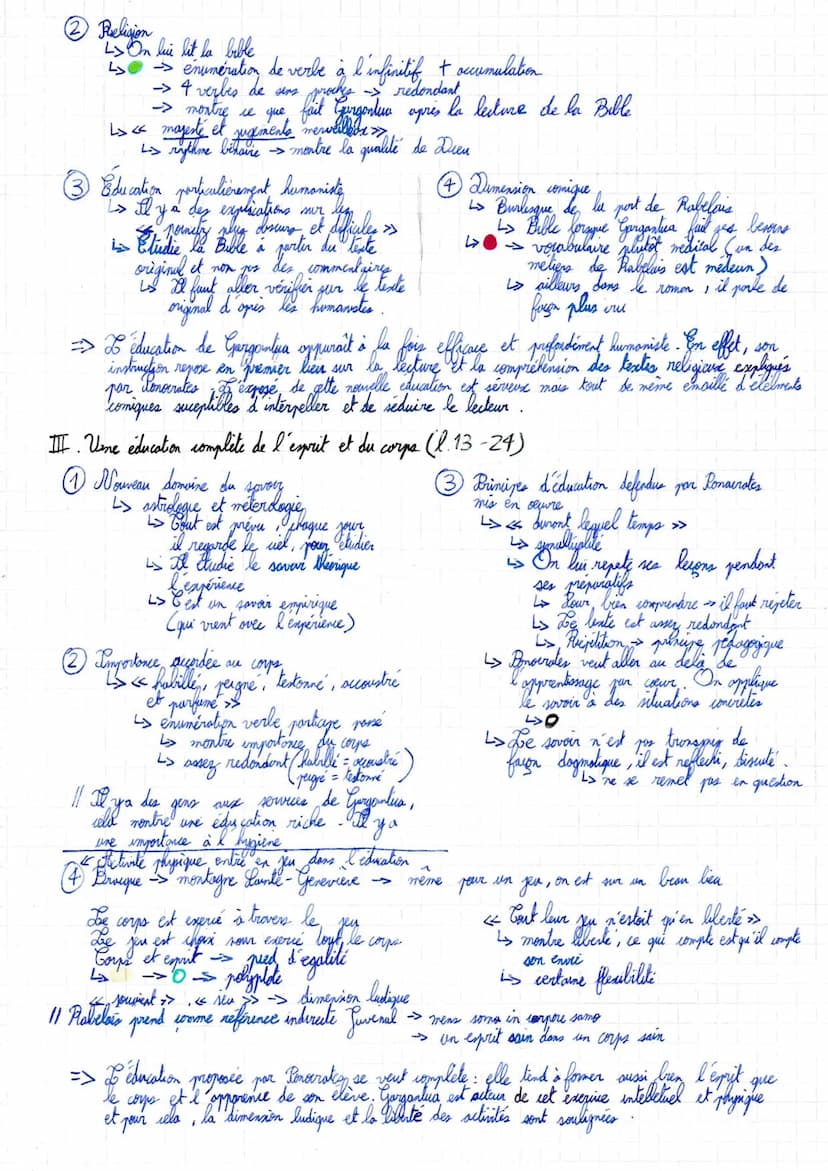 ② Religion
↳ On lui lit la bible
↳ → énumération de verbe à l'infinitif + accumulation
→ 4 verbes de sens proches → redondant
→ montre ce que fait Gargantua après la lecture de la Bible
↳ « majesté et jugements merveilleux »
↳ rythme binaire → montre la qualité de Dieu
③ Éducation particulièrement humaniste
↳ Il y a des explications sur les
« points plus obscurs et difficiles »
↳ Étudie la Bible à partir du texte
original et non pas des commentaires
↳ Il faut aller vérifier sur le texte
original d'après les humanistes.
④ Dimension comique
↳ Burlesque de la part de Rabelais
↳ Bible lorsque Gargantua fait ses besoins
↳ → vocabulaire plutôt médical (un des
métiers de Rabelais est médecin)
↳ ailleurs dans le roman, il parle de
façon plus cru
=> L'éducation de Gargantua apparaît à la fois efficace et profondément humaniste. En effet, son
instruction repose en premier lieu sur la lecture et la compréhension des textes religieux expliqués
par Ponocrates. L'exposé de cette nouvelle éducation est sérieux mais tout de même émaillé d'éléments
comiques suceptibles d'interpeller et de séduire le lecteur.
III. Une éducation complète de l'esprit et du corps (l.13-24)
① Nouveau domaine du savoir
↳ astrologie et météorologie
↳ Tout est prévu, chaque jour
il regarde le ciel, pour étudier
↳ Il étudie le savoir théorique
l'expérience
↳ C'est un savoir empirique
(qui vient avec l'expérience)
② Importance accordée au corps
↳ « habillé, peigné, testonné, accoustré
et parfumé »
↳ énumération verbe participe passé
↳ montre importance du corps
↳ assez redondant (habillé = accoustré
peigné = testonné)
// Il y a des gens aux services de Gargantua,
cela montre une éducation riche - Il y a
une importance à l'hygiène
③ Principes d'éducation défendus par Ponocrates
mis en œuvre
↳ « durant lequel temps »
↳ simultanéité
↳ On lui répète ses leçons pendant
ses préparatifs
↳ Pour bien comprendre → il faut répéter
↳ Le texte est assez redondant
↳ Répétition → principe pédagogique
↳ Ponocrates veut aller au delà de
l'apprentissage par cœur. On applique
le savoir à des situations concrètes
↳
↳ Le savoir n'est pas transmis de
façon dogmatique, il est réfléchi, discuté.
↳ ne se remet pas en question
« Activité physique entre en jeu dans l'éducation
④ Bracque → montagne Sainte-Geneviève → même pour un jeu, on est sur un beau lieu
Le corps est exercé à travers le jeu
Le jeu est choisi pour exercé tout le corps
Corps et esprit → pied d'égalité
↳ → → polyptote
« jouaient », « jeu » → dimension ludique
« Tout leur jeu n'estoit qu'en liberté »
↳ montre liberté, ce qui compte est qu'il compte
son envie
↳ certaine flexibilité
// Rabelais prend comme référence indirecte Juvénal → mens sana in corpore sano
→ un esprit sain dans un corps sain
=> L'éducation proposée par Ponocrates se veut complète : elle tend à former aussi bien l'esprit que
le corps et l'apparence de son élève. Gargantua est acteur de cet exercice intellectuel et physique
et pour cela, la dimension ludique et la liberté des activités sont soulignées.